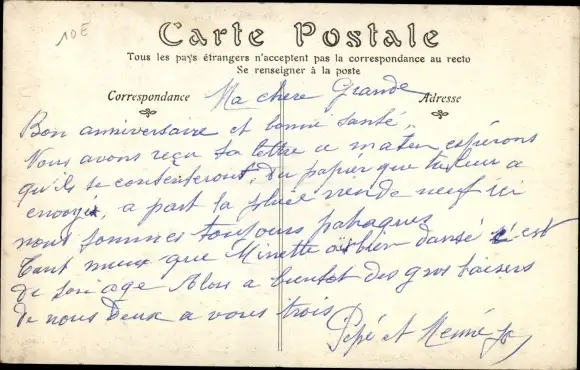 10E
Carte Postale
Tous les pays étrangers n'acceptent pas la correspondance au recto
Se renseigner à la poste
Correspondance
Adresse
Ma chere Grande
Bon anniversaire et bonne santé.
Nous avons reçu ta lettre ce matin espérons
qu'ils se contenteront du papier que tu leur a
envoyé, a part la pluie rien de neuf ici
nous sommes toujours
Tant mieux que Minette ait bien dansé c'est
de son age Alors a bientot des gros baisers
de nous deux a vous trois
Pépé et Mémé